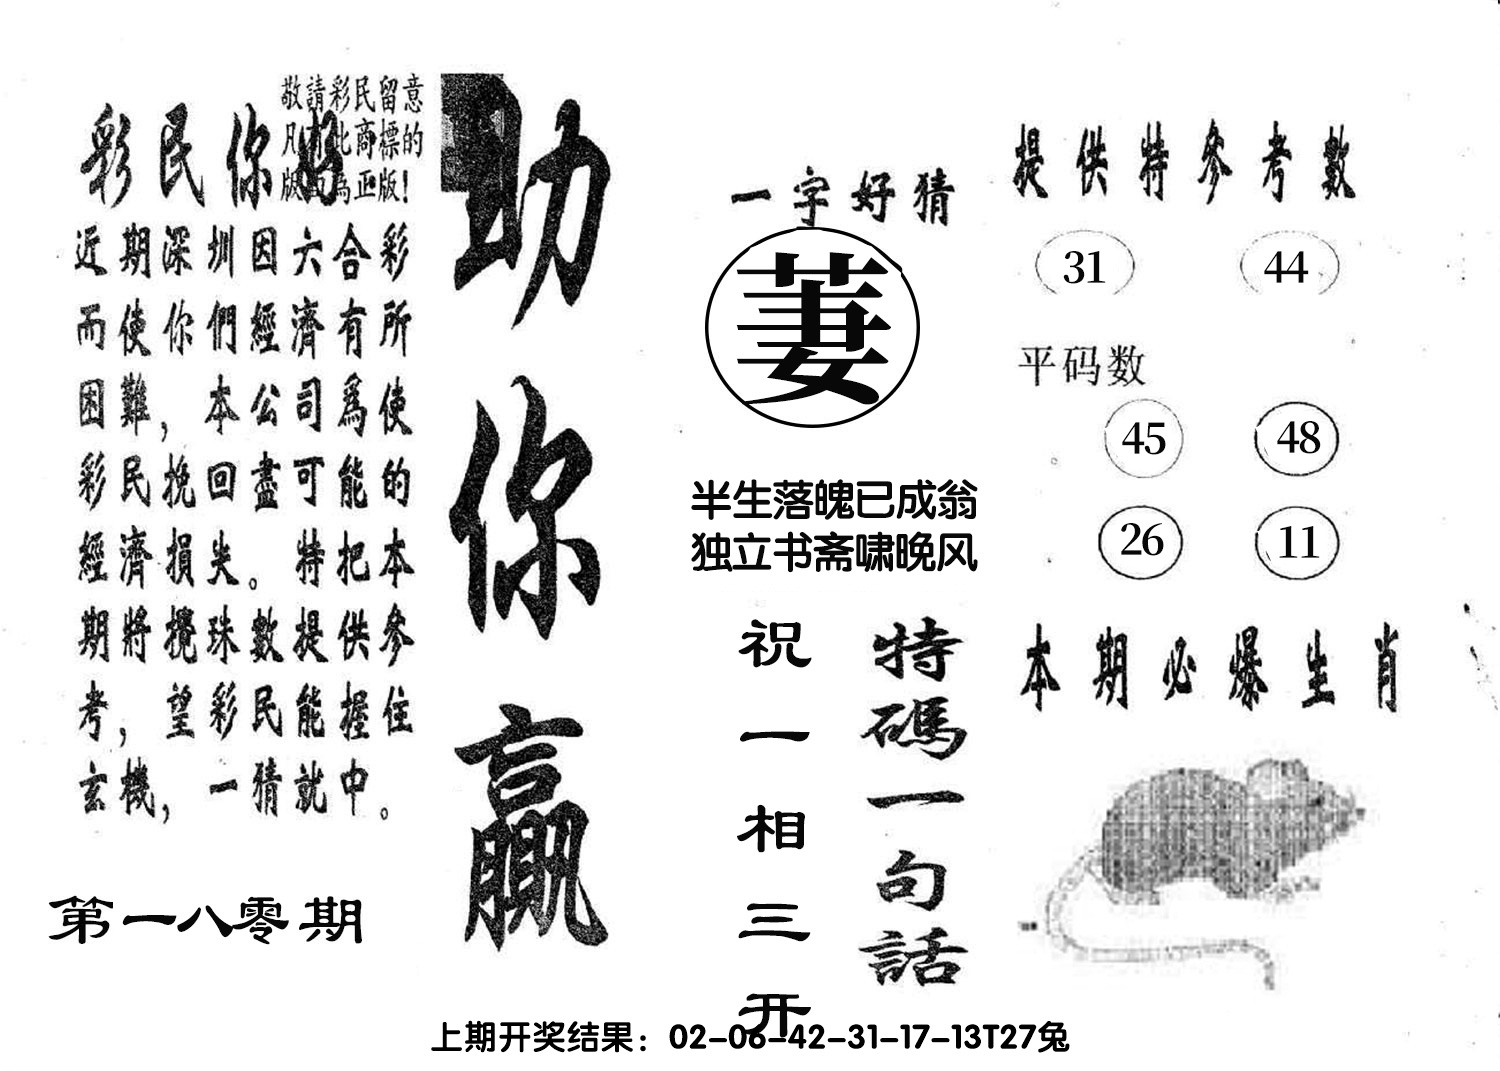 敬請彩民留意
凡有此商標的
版面為正版!
彩民你好
近期深圳因六合彩
而使你們經濟有所
困難，本公司爲使
彩民挽回盡可能的
經濟損失。特把本
期將攪珠數提供參
考，望彩民能握住
玄機，一猜就中。
第一八零期
助你贏
一字好猜
萋
半生落魄已成翁
独立书斋啸晚风
特碼一句話
祝一相三开
提供特參考數
31 44
平码数
45 48
26 11
本期必爆生肖
上期开奖结果：02-06-42-31-17-13T27兔